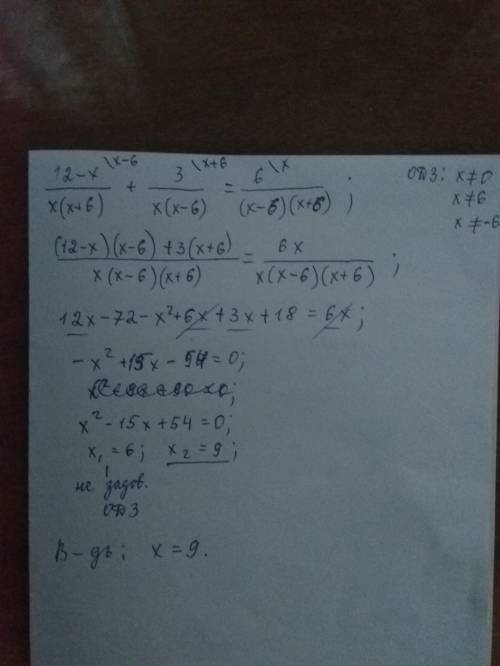 (12-x)/(x(x+6)) \x-6 + 3/(x(x-6)) \x+6 = 6/((x-6)(x+6)) \x ; ОДЗ: x≠0
x≠6
x≠-6
((12-x)(x-6)+3(x+6))/(x(x-6)(x+6)) = 6x/(x(x-6)(x+6)) ;
12x-72-x²+6x+3x+18=6x;
-x²+15x-54=0;
x²-15x+54=0;
x₁=6; x₂=9;
не задов.
ОДЗ
В-дь; x=9.